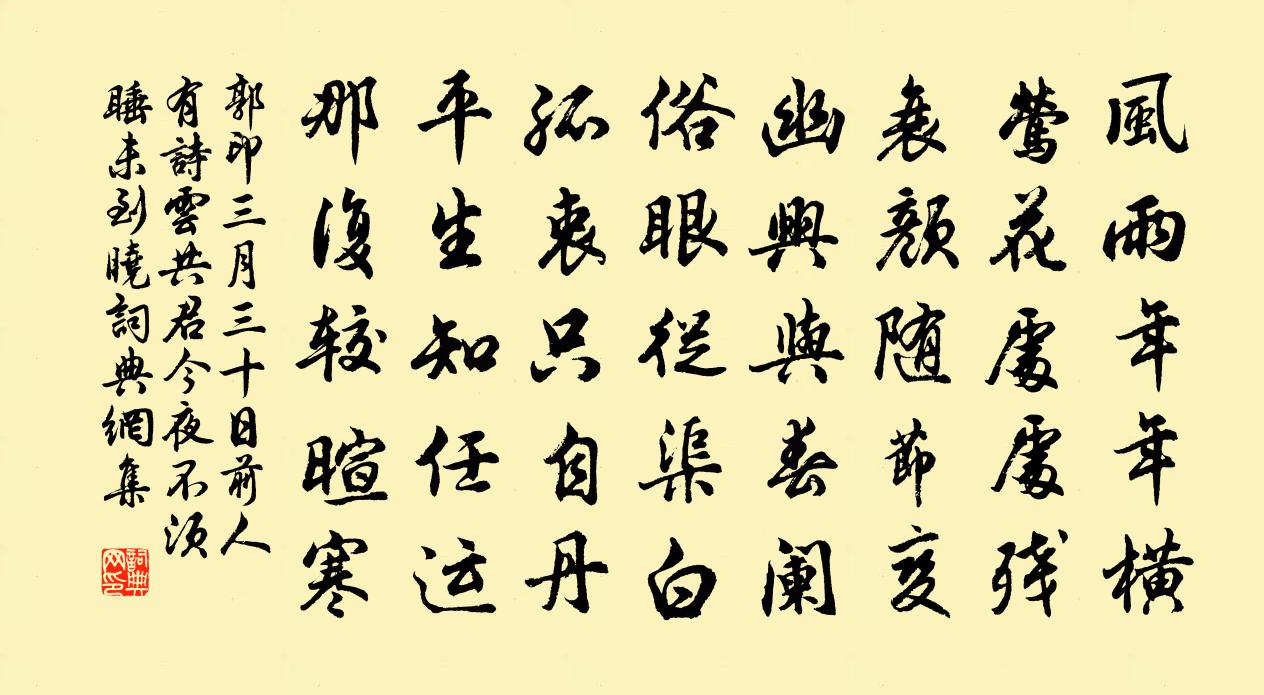 風雨年年橫
鶯花處處残
衰顏随節变
幽興與春阑
俗眼從渠白
孤衷只自丹
平生知任运
那復较暄寒
郭印三月三十日前人
有詩雲共君今夜不須
睡未到曉詞典網集
詞典网印